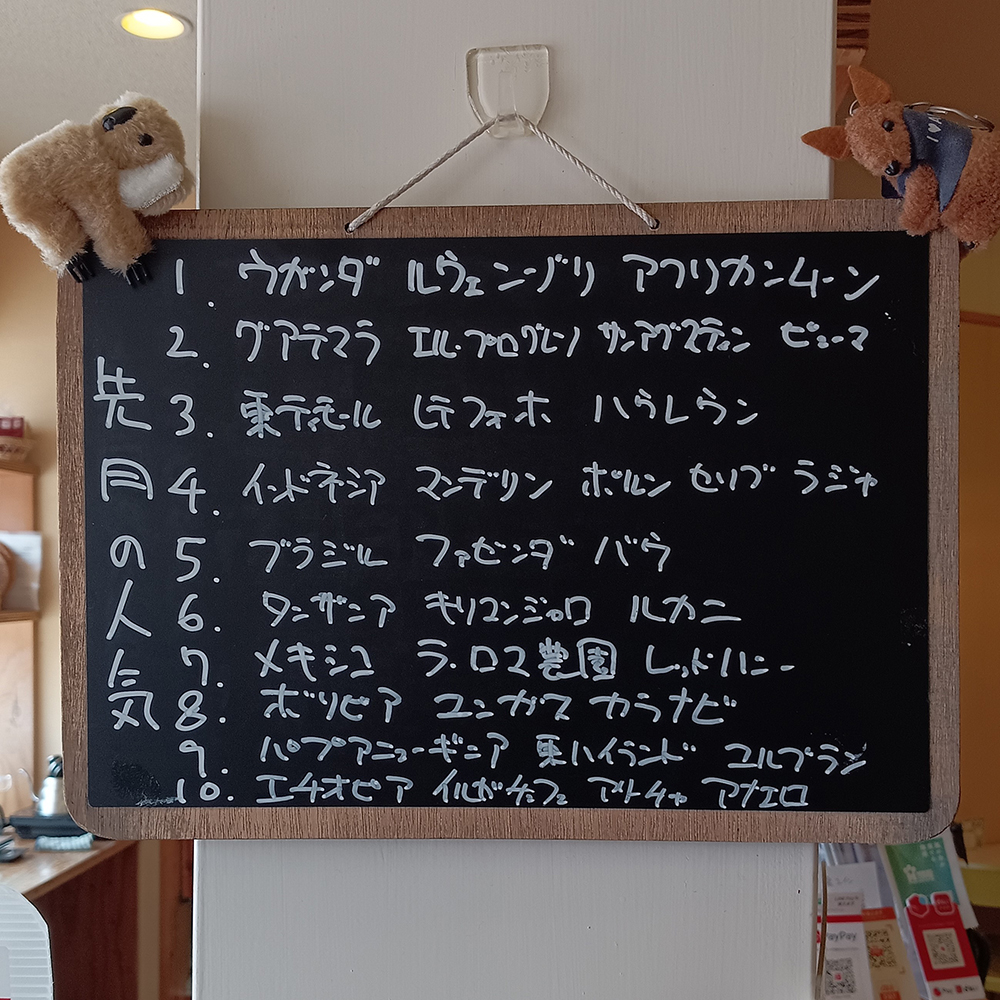 先月の人気
1. ウガンダ ルウェンゾリ アフリカンムーン
2. グアテマラ エル・プログレソ サンアグスティン ピューマ
3. 東ティモール レテフォホ ハウレウン
4. インドネシア マンデリン ポルン セリブ ラジャ
5. ブラジル ファゼンダ バウ
6. タンザニア キリマンジャロ ルカニ
7. メキシコ ラ・ロマ農園 レッドハニー
8. ボリビア ユンガス カラナビ
9. パプアニューギニア 東ハイランド ユルブラン
10. エチオピア イルガチェフェ アリーチャ アナエロ
PayPay